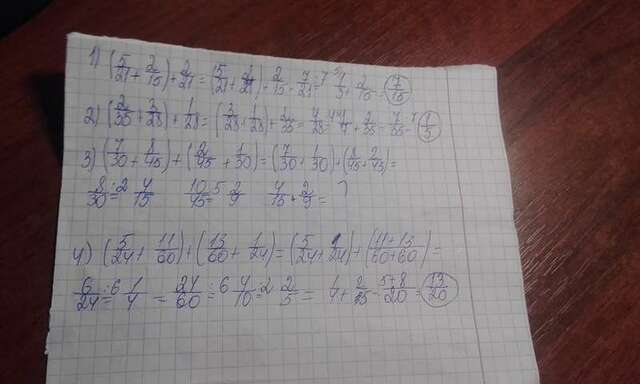 1) (5/21 + 2/15) + 2/21 = (5/21 + 2/21) + 2/15 = 7/21 :7 = 1/3 + 2/15 = 7/15
2) (2/35 + 3/28) + 1/28 = (3/28 + 1/28) + 2/35 = 4/28 :4 = 1/7 + 2/35 = 7/35 :7 = 1/5
3) (7/30 + 8/45) + (2/45 + 1/30) = (7/30 + 1/30) + (8/45 + 2/45) =
8/30 :2 = 4/15 10/45 :5 = 2/9 4/15 + 2/9 = ?
4) (5/24 + 11/60) + (13/60 + 1/24) = (5/24 + 1/24) + (11/60 + 13/60) =
6/24 :6 = 1/4 = 24/60 :6 = 4/10 :2 = 2/5 = 1/4 + 2/5 = 5+8/20 = 13/20